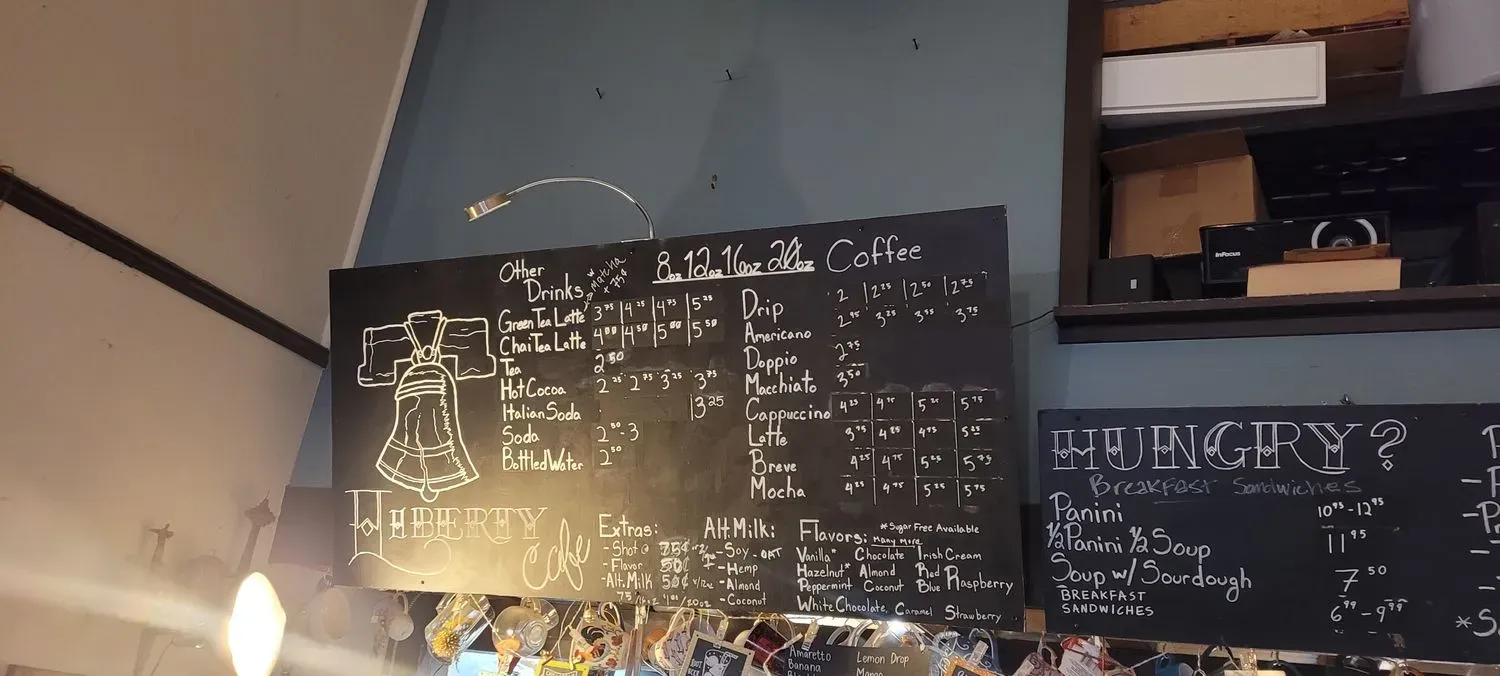 Other
Drinks
w
Matcha
+ 75¢
8oz 12oz 16oz 20oz Coffee
Green Tea Latte 3 75 4 25 4 75 5 25
Chai Tea Latte 4 00 4 50 5 00 5 50
Tea 2 50
Hot Cocoa 2 25 2 75 3 25 3 75
Italian Soda 3 25
Soda 2 50 - 3
Bottled Water 2 50
Drip 2 2 25 2 50 2 75
Americano 2 95 3 25 3 55 3 75
Doppio 2 75
Macchiato 3 50
Cappuccino 4 25 4 75 5 25 5 75
Latte 3 75 4 25 4 75 5 25
Breve 4 25 4 75 5 25 5 75
Mocha 4 25 4 75 5 25 5 75
LIBERTY
cafe
Extras:
- Shot @ 75¢
- Flavor 50¢
- Alt. Milk 50¢
Alt. Milk:
- Soy - OAT
- Hemp
- Almond
- Coconut
Flavors: *Sugar Free Available
Many More
Vanilla* Chocolate Irish Cream
Hazelnut* Almond Red Raspberry
Peppermint Coconut Blue
White Chocolate, Caramel Strawberry
Amaretto Lemon Drop
Banana Mango
InFocus
HUNGRY?
Breakfast Sandwiches
Panini 10 95 - 12 95
1/2 Panini 1/2 Soup 11 95
Soup w/ Sourdough 7 50
BREAKFAST
SANDWICHES 6 99 - 9 99